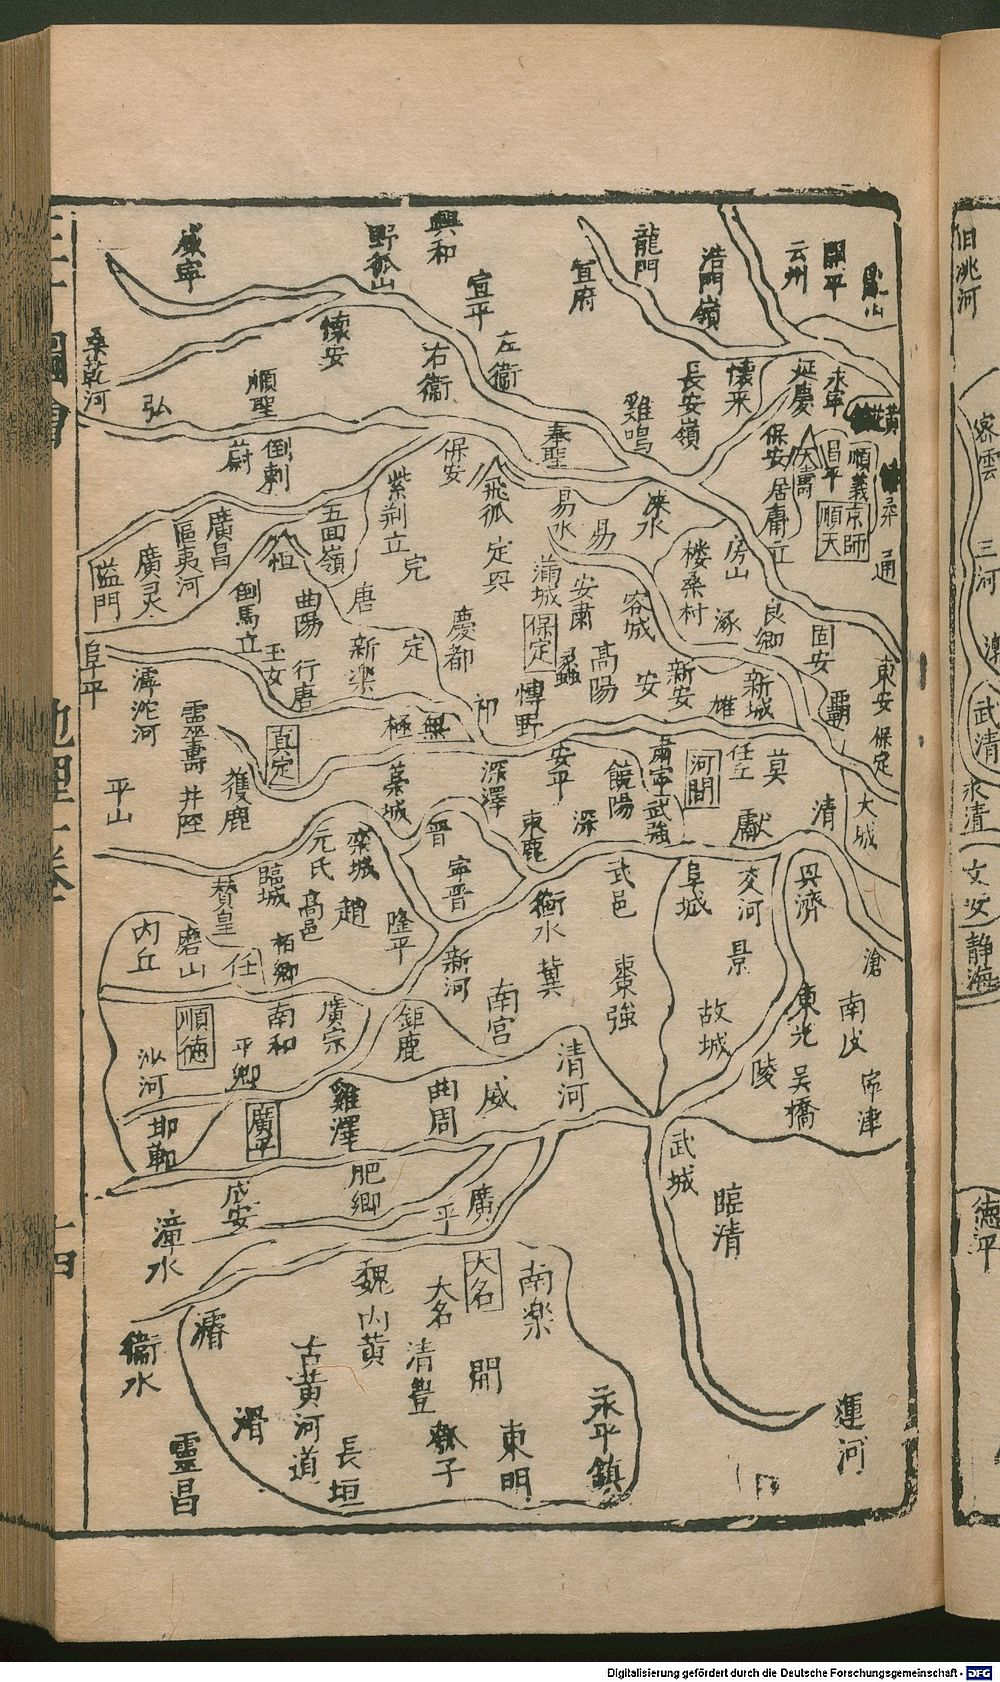 旧洮河
密雲
三河
武清
永清
文安
静海
德平
開平
云州
浩門嶺
龍門
宣府
興和
宜平
野狐山
咸寧
永寧
延慶
懷來
長安嶺
雞鳴
左衛
右衛
懷安
順聖
弘
桑乾河
黃
順義
京師
順天
昌平
保安
居庸立
奉聖
保安
飛狐
紫荆立
倒剌
蔚
通
房山
涞水
楼桑村
易水
易
定興
完
五回嶺
廣昌
區夷河
廣灵
隘門
恒
倒馬立
曲陽
唐
慶都
蒲城
保定
安肅
容城
涿
良鄉
固安
東安
保定
霸
新城
雄
新安
安
高陽
蠡
博野
祁
定
新楽
行唐
玉女
阜平
滹沱河
靈壽
真定
無極
大城
清
莫
任丘
河間
肅寧
武強
饒陽
安平
深澤
藁城
獲鹿
井陘
平山
獻
深
東鹿
晋
欒城
元氏
交河
阜城
武邑
衡水
寧晋
趙
高邑
臨城
贊皇
滄
景
棗強
冀
新河
隆平
柏鄉
任
磨山
内丘
南皮
東光
故城
南宮
鉅鹿
廣宗
南和
順德
吳橋
陵
清河
威
曲周
雞澤
平鄉
沙河
廣平
邯鄲
武城
臨清
廣平
肥鄉
成安
漳水
南楽
大名
大名
魏
内黄
清豊
開
濬
衛水
古黄河道
滑
長垣
東明
永平鎮
靈昌
運河
地理一卷
十四
Digitalisierung gefördert durch die Deutsche Forschungsgemeinschaft - DFG